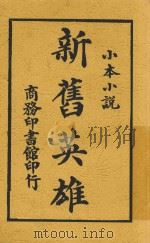 小本小說
新舊英雄
商務印書館印行
http://www.mtoou.info